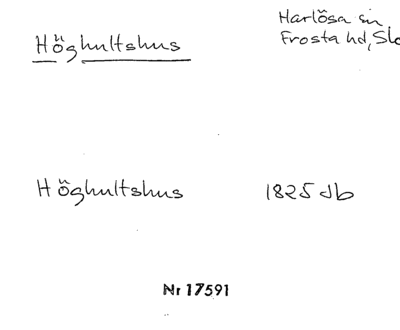 Höghultshus
Harlösa sn
Frosta hd,
Höghultshus
1825 db
Nr 17591